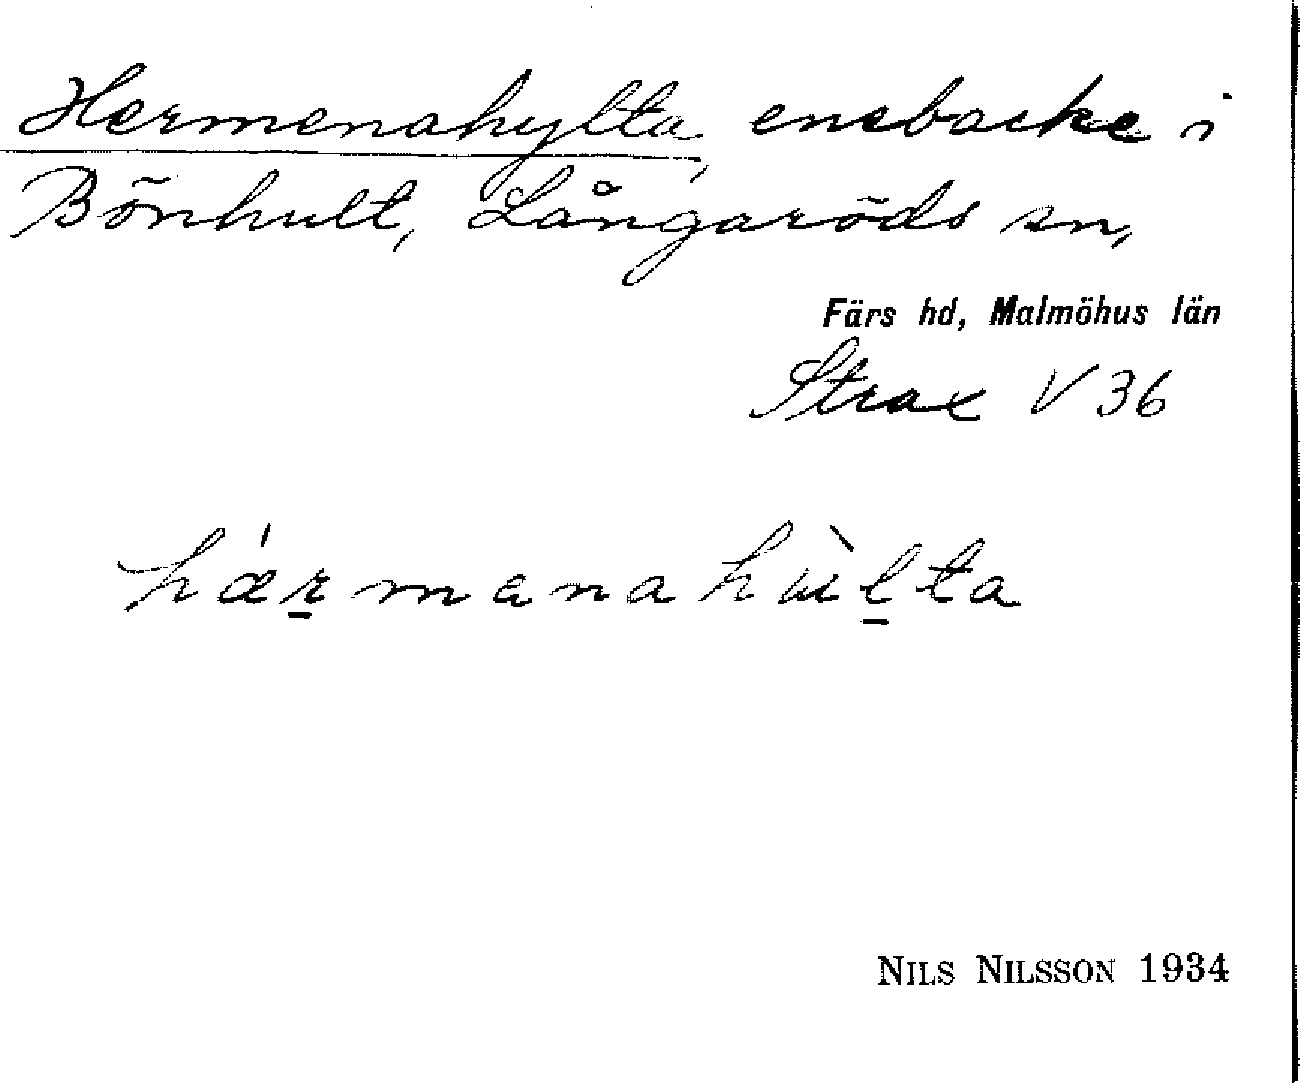 Hermenahylta, enebacke i
Bönhult, Långaröds sn,
Färs hd, Malmöhus län
Strax V 36
hǽr̠manahùl̠ta
NILS NILSSON 1934